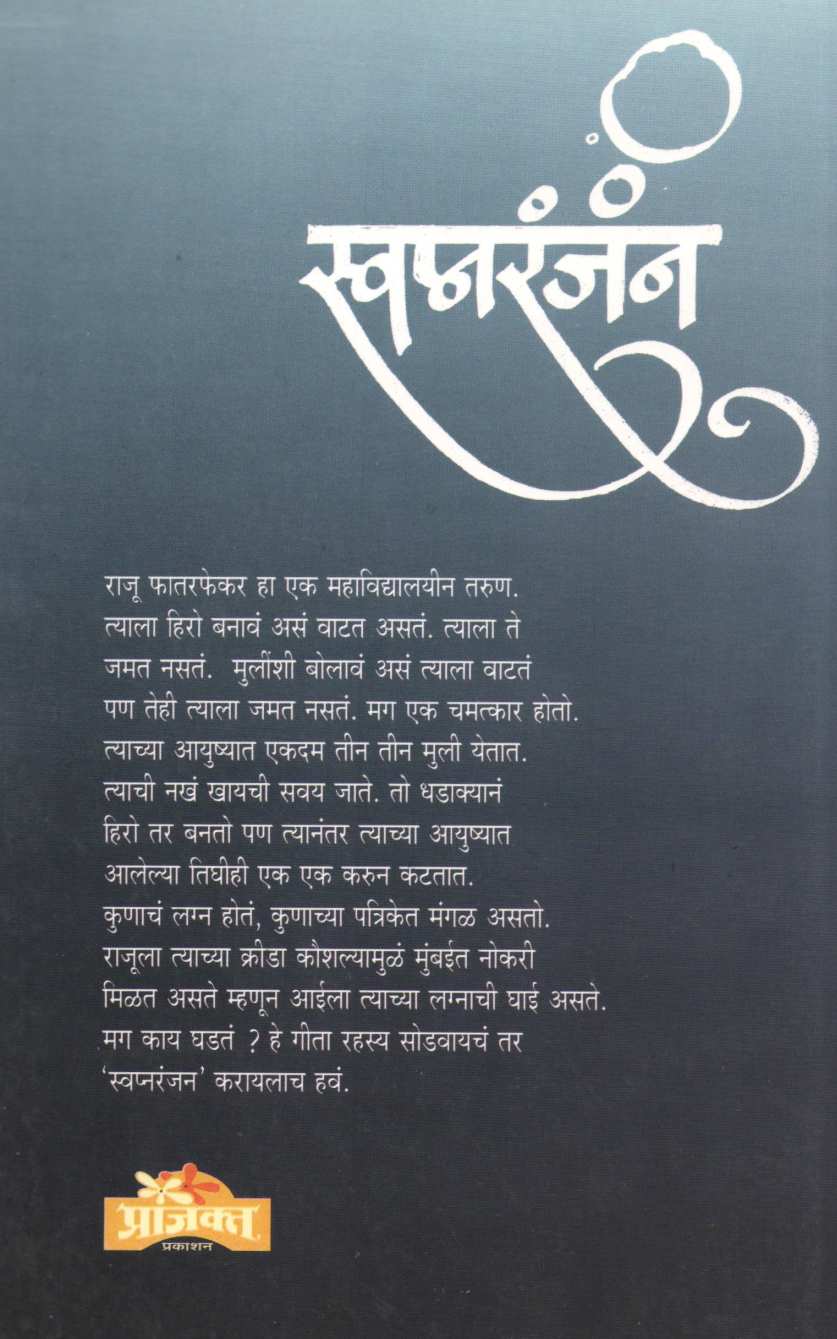 स्वप्नरंजन
राजू फातरफेकर हा एक महाविद्यालयीन तरुण.
त्याला हिरो बनावं असं वाटत असतं. त्याला ते
जमत नसतं. मुलींशी बोलावं असं त्याला वाटतं
पण तेही त्याला जमत नसतं. मग एक चमत्कार होतो.
त्याच्या आयुष्यात एकदम तीन तीन मुली येतात.
त्याची नखं खायची सवय जाते. तो धडाक्यानं
हिरो तर बनतो पण त्यानंतर त्याच्या आयुष्यात
आलेल्या तिघीही एक एक करुन कटतात.
कुणाचं लग्न होतं, कुणाच्या पत्रिकेत मंगळ असतो.
राजूला त्याच्या क्रीडा कौशल्यामुळं मुंबईत नोकरी
मिळत असते म्हणून आईला त्याच्या लग्नाची घाई असते.
मग काय घडतं ? हे गीता रहस्य सोडवायचं तर
‘स्वप्नरंजन’ करायलाच हवं.
प्राजक्त
प्रकाशन